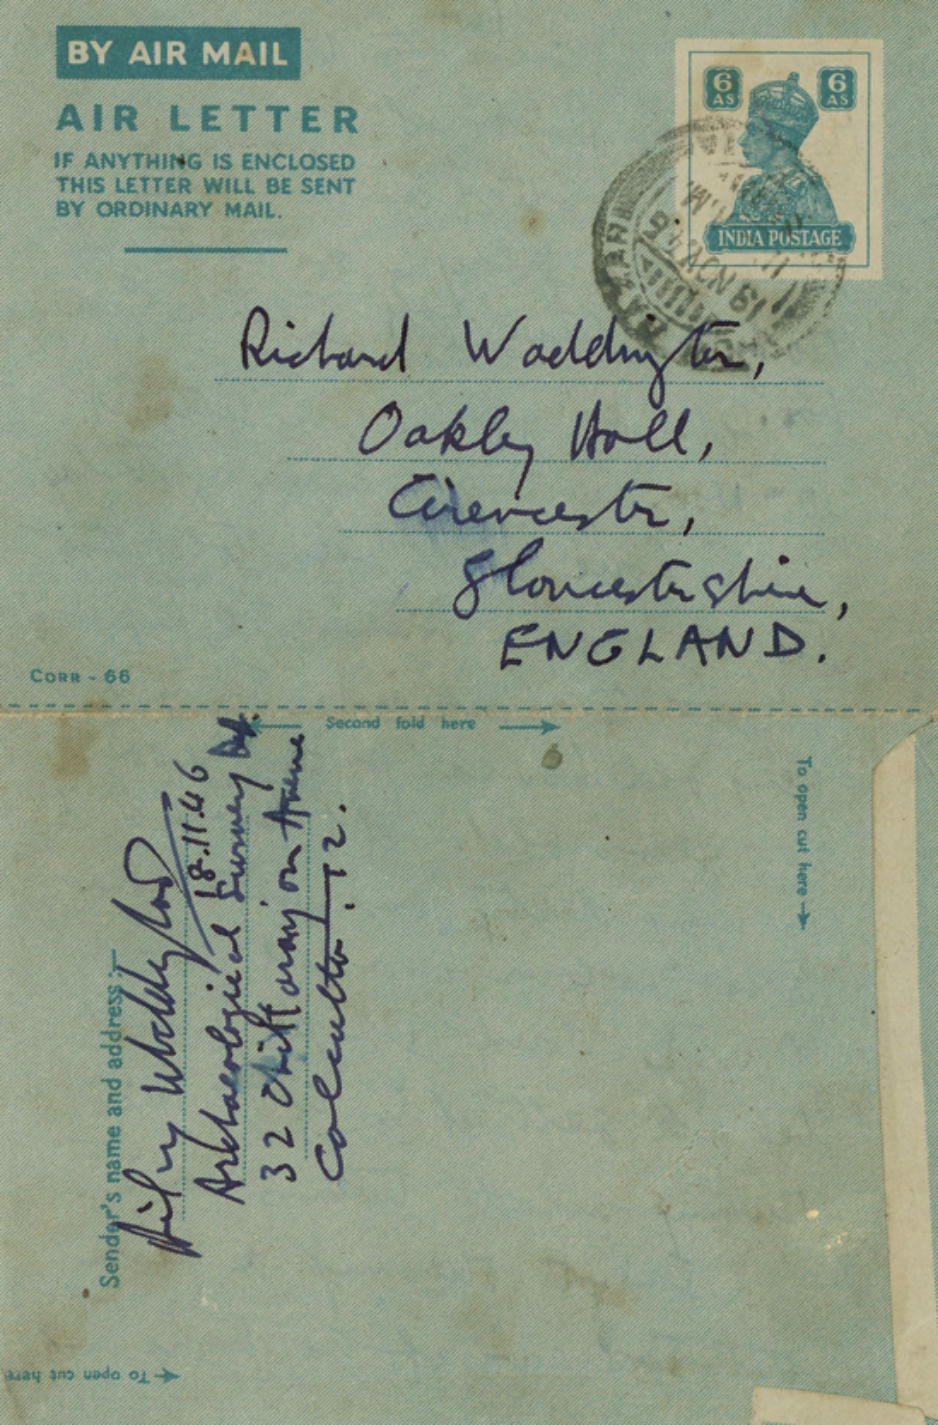 BY AIR MAIL
AIR LETTER
IF ANYTHING IS ENCLOSED
THIS LETTER WILL BE SENT
BY ORDINARY MAIL.
6 AS
6 AS
INDIA POSTAGE
19 NOV 46
Richard Waddington,
Oakley Hall,
Cirencester,
Gloucestershire,
ENGLAND.
CORR - 66
Second fold here
To open cut here
Sender's name and address :-
Hilary Waddington
18.11.46
Archaeological Survey Dept.
32 Chittaranjan Avenue
Calcutta. 12.
To open cut here